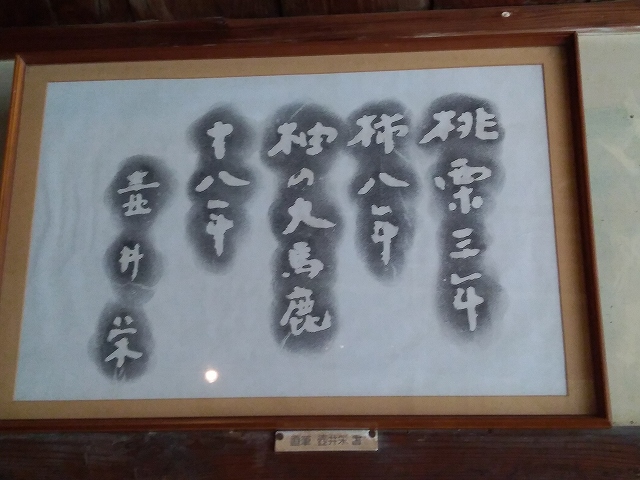 桃栗三年
柿八年
柚の大馬鹿
十八年
壷井栄
直筆 壺井栄 書